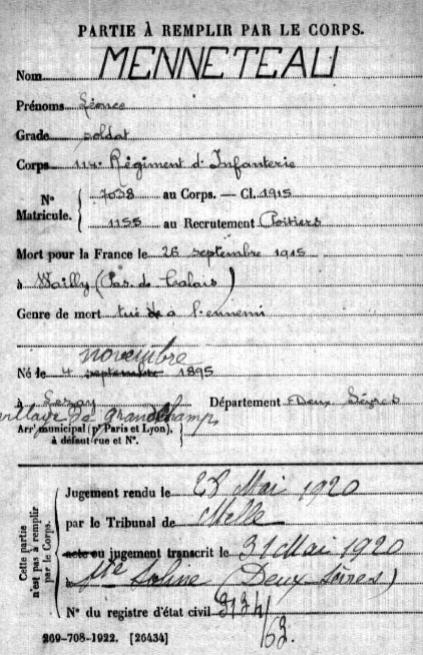 PARTIE À REMPLIR PAR LE CORPS.
Nom MENNETEAU
Prénoms Léonce
Grade soldat
Corps 114e Régiment d'Infanterie
N° Matricule. 7038 au Corps. — Cl. 1915
1155 au Recrutement Poitiers
Mort pour la France le 26 septembre 1915
à Wailly (Pas de Calais)
Genre de mort tué à l'ennemi
novembre
Né le 4 septembre 1895
à Lezay Département Deux Sèvres
village de Grandchamp
Arrt municipal (pr Paris et Lyon), à défaut rue et N°.
Cette partie n'est pas à remplir par le Corps.
Jugement rendu le 28 Mai 1920
par le Tribunal de Melle
acte ou jugement transcrit le 31 Mai 1920
à Ste Soline (Deux Sèvres)
N° du registre d'état civil
269-708-1922. [26434]